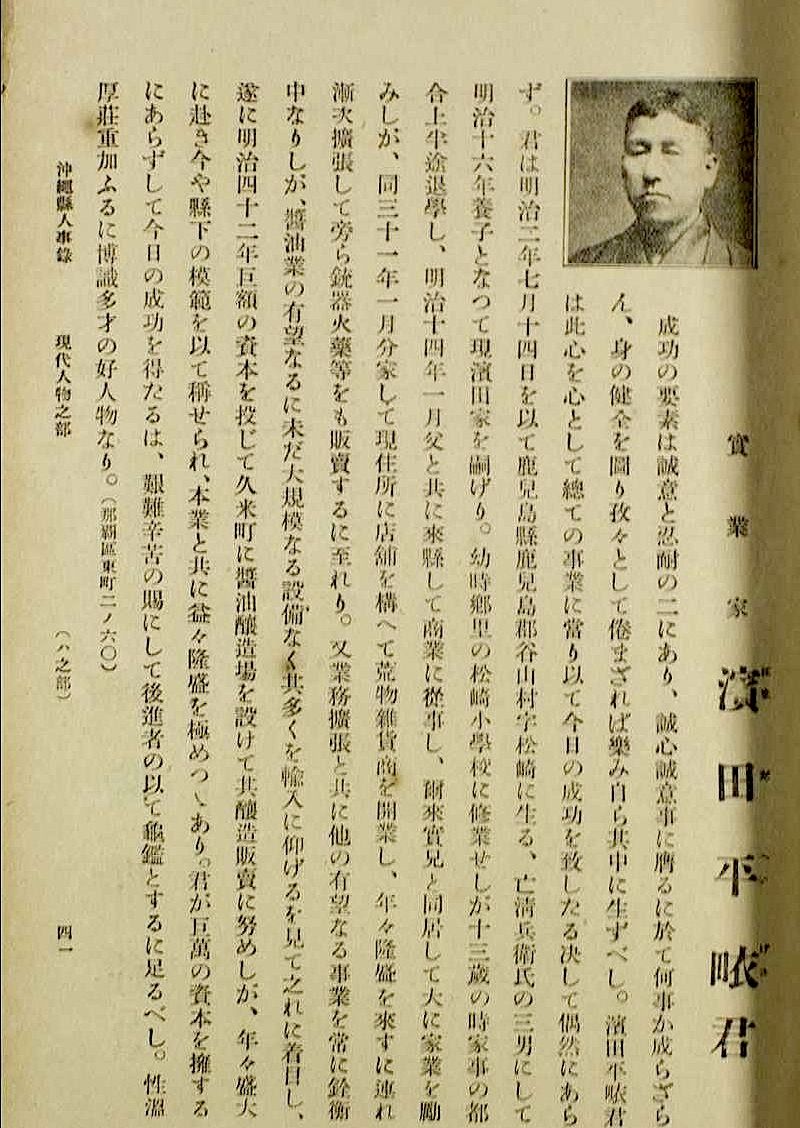 實業家 濱田平畩君
成功の要素は誠意と忍耐の二にあり、誠心誠意事に膺るに於て何事か成らざら
ん、身の健全を圖り孜々として倦まざれば樂み自ら其中に生ずべし。濱田平畩君
は此心を心として總ての事業に當り以て今日の成功を致したる決して偶然にあら
ず。君は明治二年七月十四日を以て鹿兒島縣鹿兒島郡谷山村字松崎に生る、亡淸兵衛氏の三男にして
明治十六年養子となつて現濱田家を嗣げり。幼時鄕里の松崎小學校に修業せしが十三歳の時家事の都
合上半途退學し、明治十四年一月父と共に來縣して商業に從事し、爾來實兄と同居して大に家業を勵
みしが、同三十一年一月分家して現住所に店舖を構へて荒物雜貨商を開業し、年々隆盛を來すに連れ
漸次擴張して旁ら銃器火藥等をも販賣するに至れり。又業務擴張と共に他の有望なる事業を常に銓衡
中なりしが、醬油業の有望なるに未だ大規模なる設備なく其多くを輸入に仰げるを見て之れに着目し、
遂に明治四十二年巨額の資本を投じて久米町に醬油釀造場を設けて其釀造販賣に努めしが、年々盛大
に赴き今や縣下の模範を以て稱せられ、本業と共に益々隆盛を極めつゝあり。君が巨萬の資本を擁する
にあらずして今日の成功を得たるは、艱難辛苦の賜にして後進者の以て龜鑑とするに足るべし。性溫
厚莊重加ふるに博識多才の好人物なり。(那覇區東町二ノ六〇)
沖繩縣人事錄 現代人物之部 (ハ之部) 四一